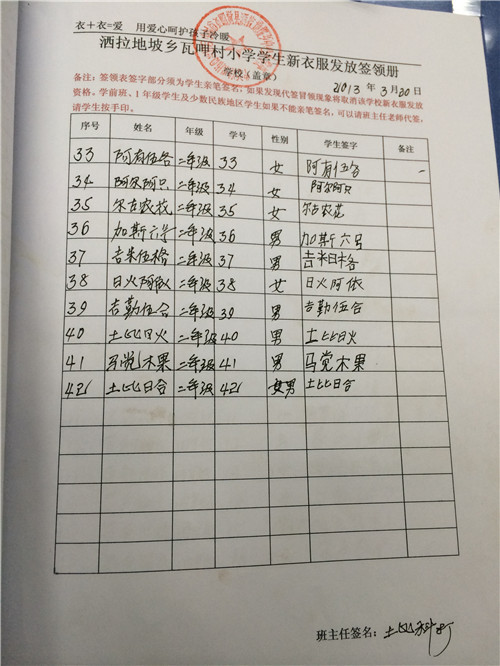 衣+衣=爱 用爱心呵护孩子冷暖
洒拉地坡乡瓦呷村小学学生新衣服发放签领册
学校(盖章) 2013 年 3月 20 日
备注:签领表签字部分须为学生亲笔签名,如果发现代签冒领现象将取消该学校新衣服发放
资格。学前班、1年级学生及少数民族地区学生如果不能亲笔签名,可以请班主任老师代签,
请学生按手印。
序号 姓名 年级 学号 性别 学生签字 备注
33 阿有伍各 二年级 33 女 阿有伍各
34 阿尔阿只 二年级 34 女 阿尔阿只
35 尔古农 二年级 35 女 尔古农
36 加斯六号 二年级 36 男 加斯六号
37 吉米伍格 二年级 37 男 吉米
38 日火阿依 二年级 38 女 日火阿依
39 吉勒伍合 二年级 39 男 吉勒伍合
40 土比日火 二年级 40 男 土比日火
41 马党木果 二年级 41 男 马党木果
42 土比日合 二年级 42 男 土比日合
班主任签名: 土比科